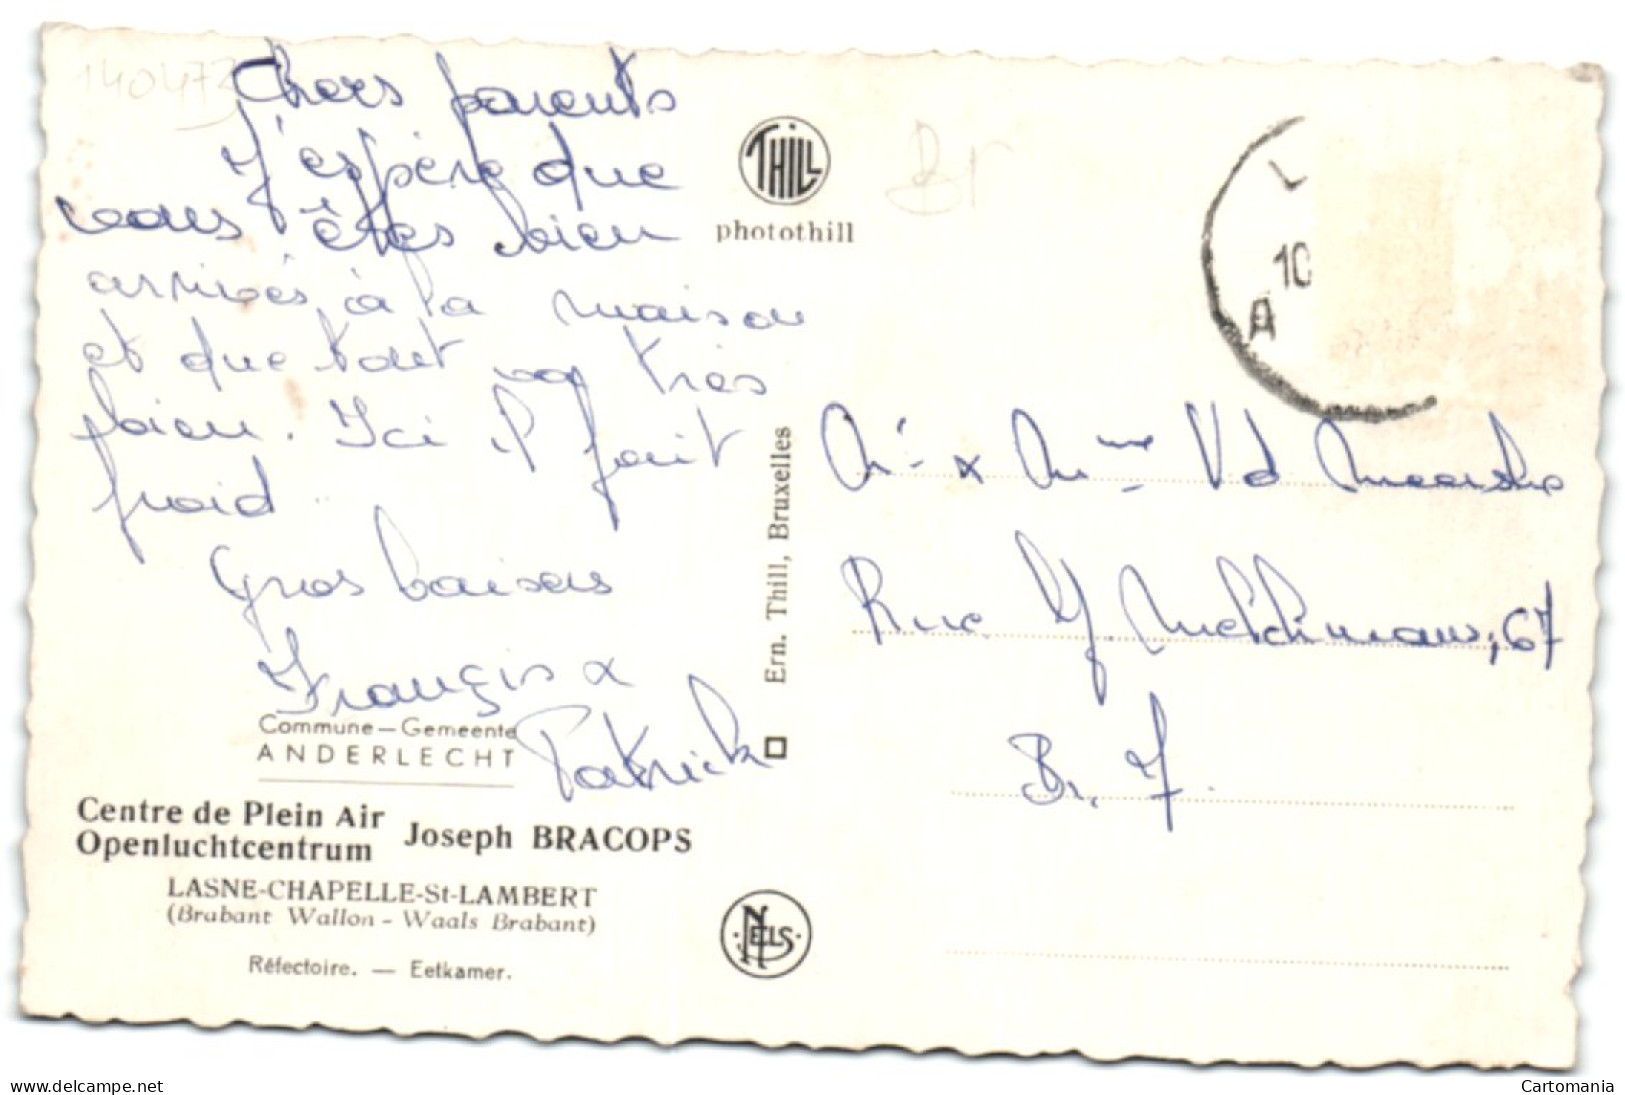 140473
Chers parents
J'espère que
vous êtes bien
arrivés à la maison
et que tout va très
bien. Ici il fait
froid.
Gros baisers
Françis &
Patrick
Commune - Gemeente
ANDERLECHT
Centre de Plein Air
Openluchtcentrum
Joseph BRACOPS
LASNE-CHAPELLE-St-LAMBERT
(Brabant Wallon - Waals Brabant)
Réfectoire. — Eetkamer.
THILL
photothill
Ern. Thill, Bruxelles
NELS
Br
L
10
A
Mr & Mme Vd
Rue J. 67
Br. 7.
www.delcampe.net
Cartomania